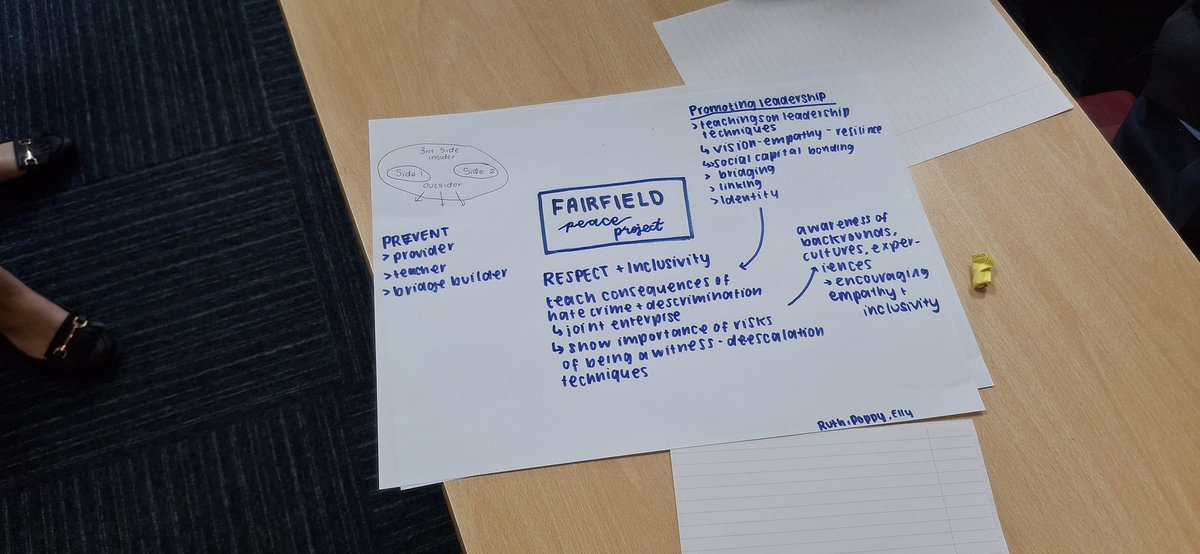 3rd side
insider
Side 1
Side 2
outsider
PREVENT
> provider
> teacher
> bridge builder
FAIRFIELD
peace
project
RESPECT + Inclusivity
teach consequences of
hate crime + descrimination
↳ joint enterprise
↳ show importance of risks
of being a witness - deescalation
techniques
Promoting leadership
> teachings on leadership
techniques
↳ vision - empathy - resilince
↳ social capital bonding
> bridging
> linking
> Identity
awareness of
backrounds,
cultures, exper-
iences
→ encouraging
empathy +
inclusivity
Ruth, Poppy, Elly